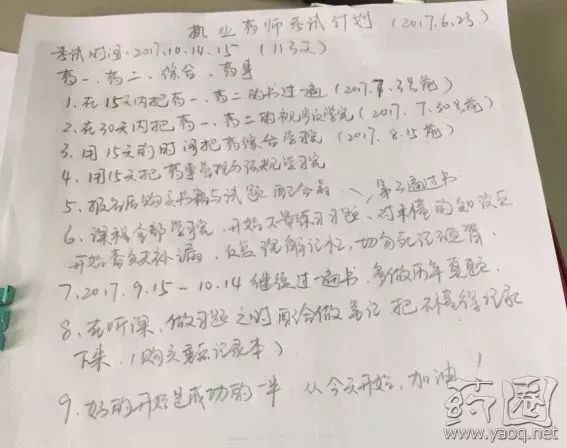 执业药师考试计划 (2017.6.23)
考试时间:2017.10.14.15 (113天)
药一、药二、综合、药事
1.在15天内把药一、药二的书过一遍(2017.7.3号前)
2.在30天内把药一、药二的视频学完(2017.7.30号前)
3.用15天的时间把药综合学完 (2017.8.15前)
4.用15天把药事管理与法规学习完
5.报名后购买书籍与试题 配合前一、第二遍过书
6.课程全部学完,开始大量练习习题、对未懂的知识点
开始查缺补漏,反复理解记忆,切勿死记硬背
7.2017.9.15-10.14继续过一遍书,多做历年真题
8.在听课、做习题之时配合做笔记 把不懂得记录
下来.(购买 记录本)
9.好的开始是成功的一半 从今天开始,加油!
药圈
www.yaoq.net